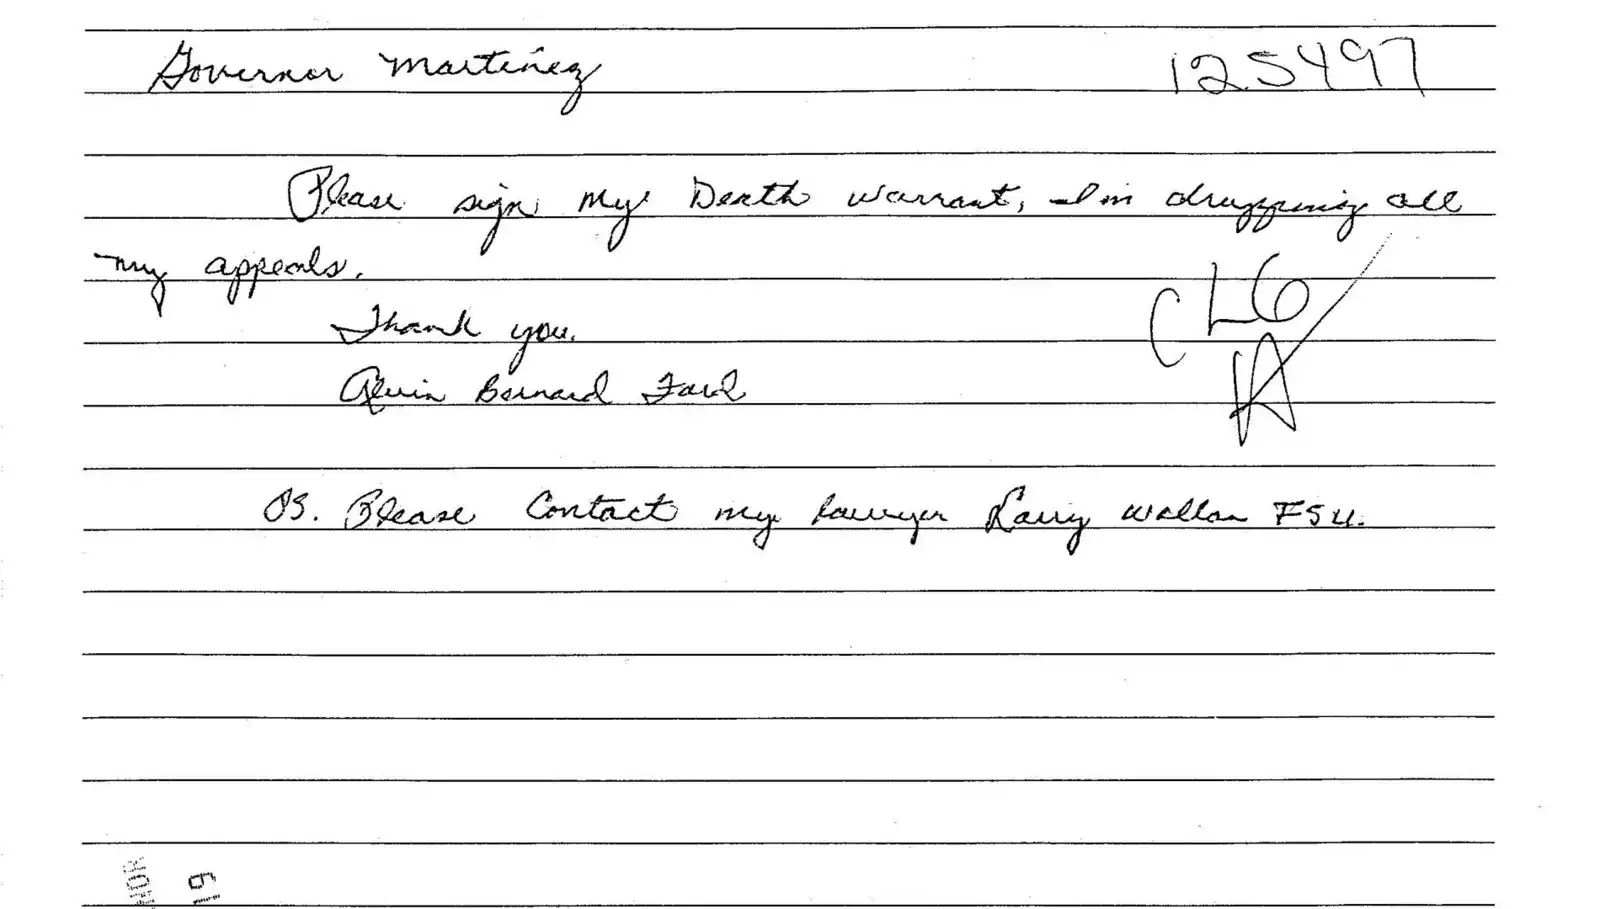 Governor Martinez 125497
Please sign my Death warrant, I'm dropping all
my appeals.
Thank you.
Alvin Bernard Ford
CLG
PS. Please Contact my lawyer Larry Wollan FSU.
19